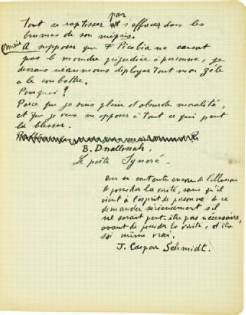 Tout ce
par
s'effacer dans les
brumes de son mépris.
A supposer que F Picabia ne causât
pas le moindre préjudice à personne, je
devrais néanmoins déployer tout mon zèle
à le combattre.
Pourquoi ?
Parce que je suis plein d'absurde moralité,
et que je veux m'opposer à tout ce qui peut
la blesser.
B. Dnallorah.
Le poète Ignoré.
On se contente encore de l'illusion
de posséder la vérité, sans qu'il
vient à l'esprit de personne de se
demander sérieusement s'il
ne serait peut-être pas nécessaire,
avant de posséder la vérité, d'être
soi même vrai.
J. Caspar Schmidt.